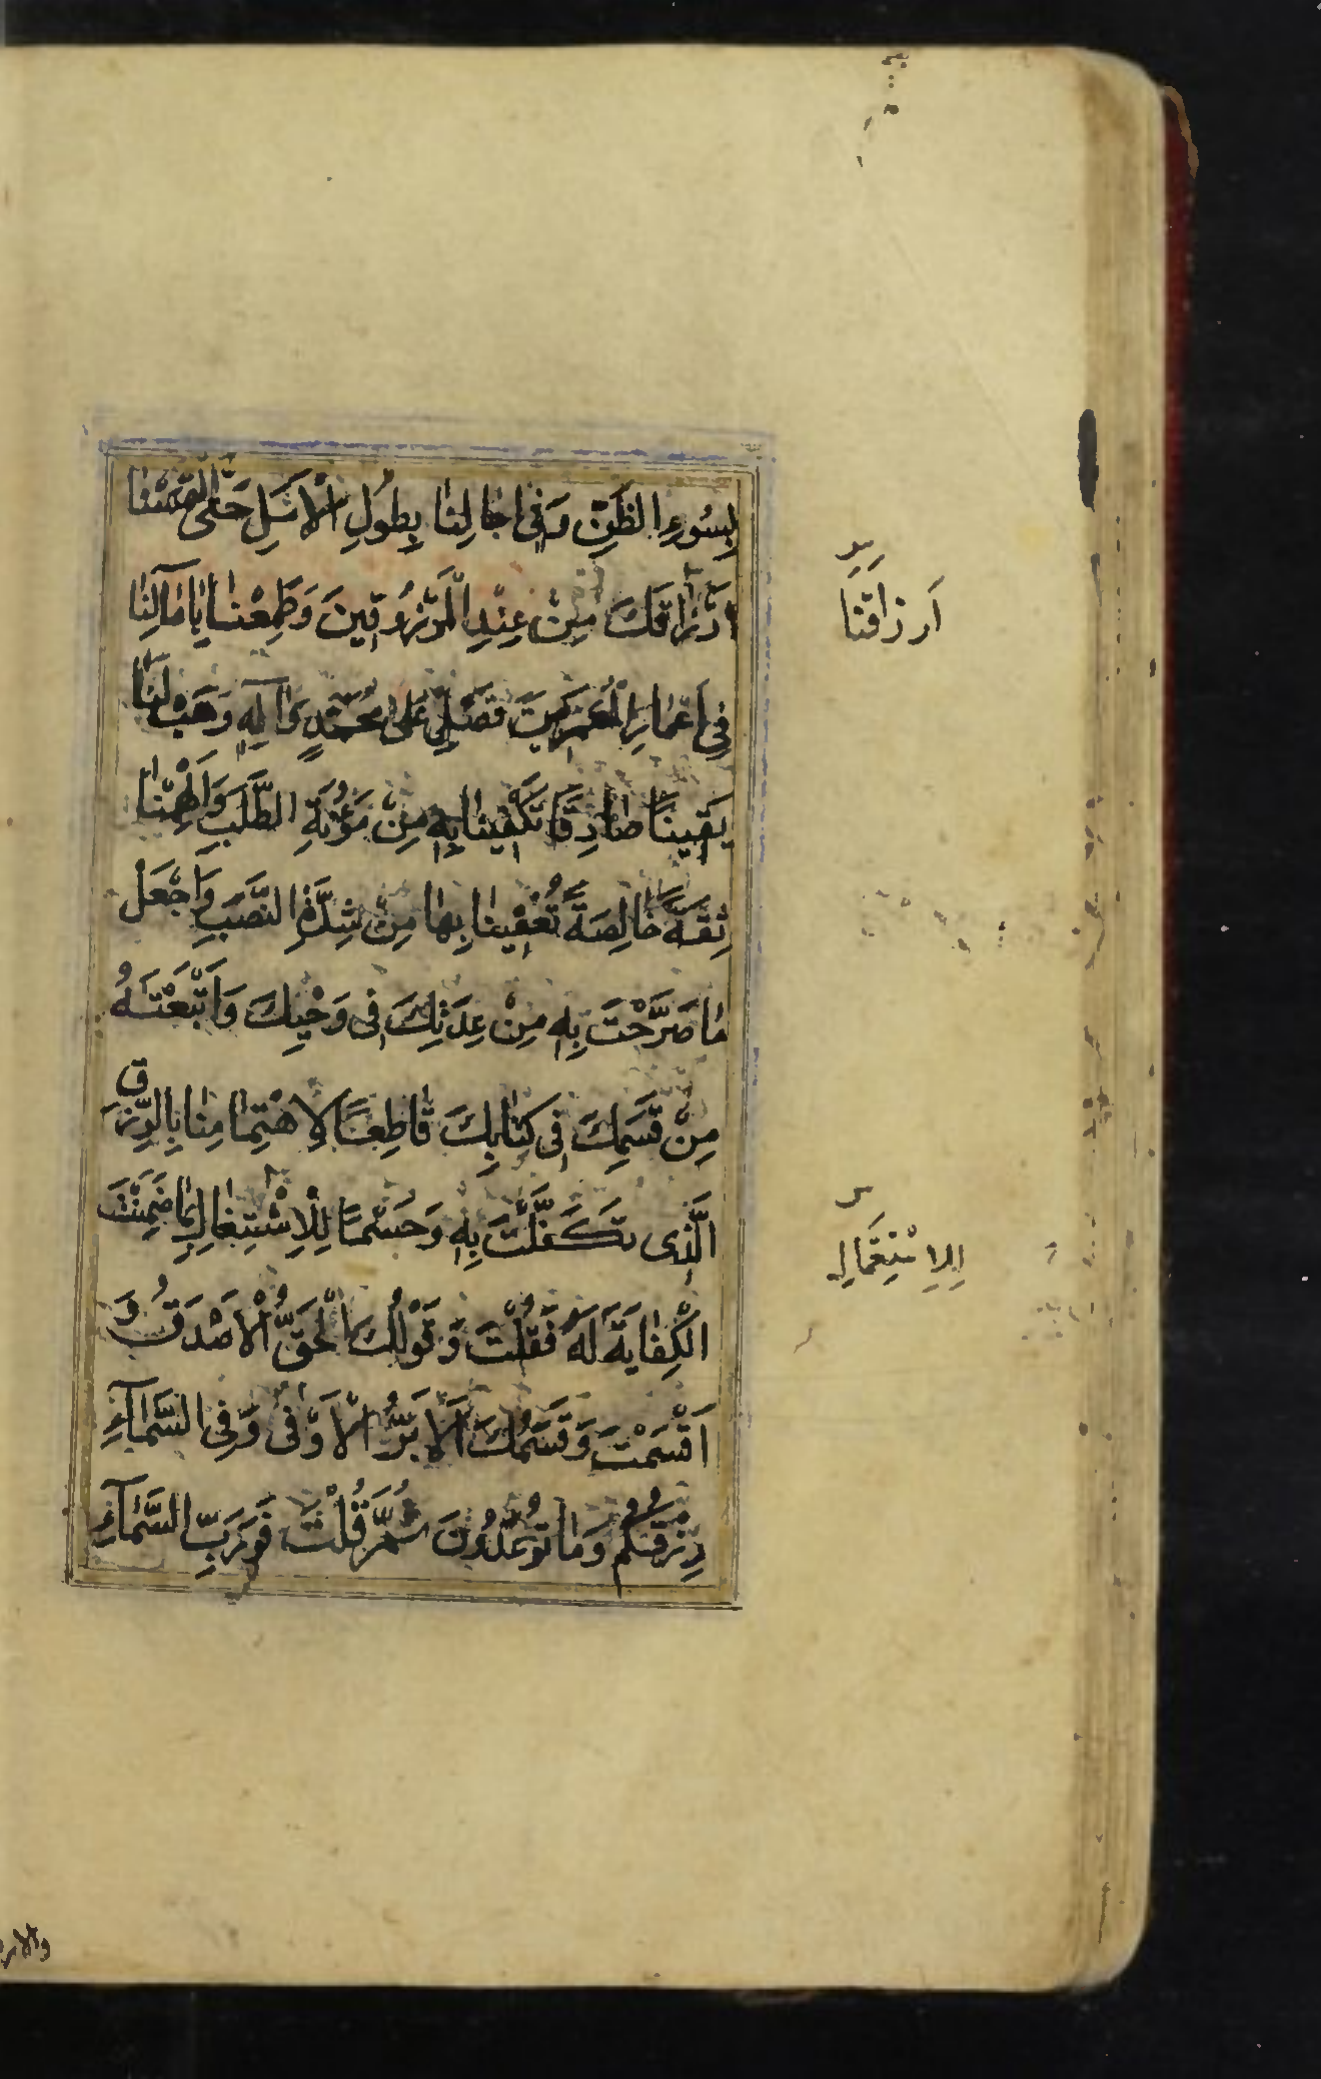 بِسُوءِ الظَّنِّ وَفِى اٰجٰالِنٰا بِطُولِ الْاَمَلِ حَتَّى الْتَمَسْنٰا
اَرْزٰاقَكَ مِنْ عِنْدِ الْمَرْزُوقِينَ وَطَمِعْنٰا بِاٰمٰالِنٰا
فِى اَعْمٰارِ الْمُعَمَّرِينَ فَصَلِّ عَلٰى مُحَمَّدٍ وَاٰلِهِ وَهَبْ لَنٰا
يَقِينًا صٰادِقًا تَكْفِينٰا بِهِ مِنْ مَؤُنَةِ الطَّلَبِ وَاَلْهِمْنٰا
ثِقَةً خٰالِصَةً تُعْفِينٰا بِهٰا مِنْ شِدَّةِ النَّصَبِ وَاجْعَلْ
مٰا صَرَّحْتَ بِهِ مِنْ عِدَتِكَ فِى وَحْيِكَ وَاَتْبَعْتَهُ
مِنْ قَسَمِكَ فِى كِتٰابِكَ قٰاطِعًا لِاهْتِمٰامِنٰا بِالرِّزْقِ
الَّذِى تَكَفَّلْتَ بِهِ وَحَسْمًا لِلْاِشْتِغٰالِ بِمٰا ضَمِنْتَ
الْكِفٰايَةَ لَهُ فَقُلْتَ وَقَوْلُكَ الْحَقُّ الْاَصْدَقُ وَ
اَقْسَمْتَ وَقَسَمُكَ الْاَبَرُّ الْاَوْفٰى وَفِى السَّمٰآءِ
رِزْقُكُمْ وَمٰا تُوعَدُونَ ثُمَّ قُلْتَ فَوَرَبِّ السَّمٰآءِ
اَرزاقَنا
والارض